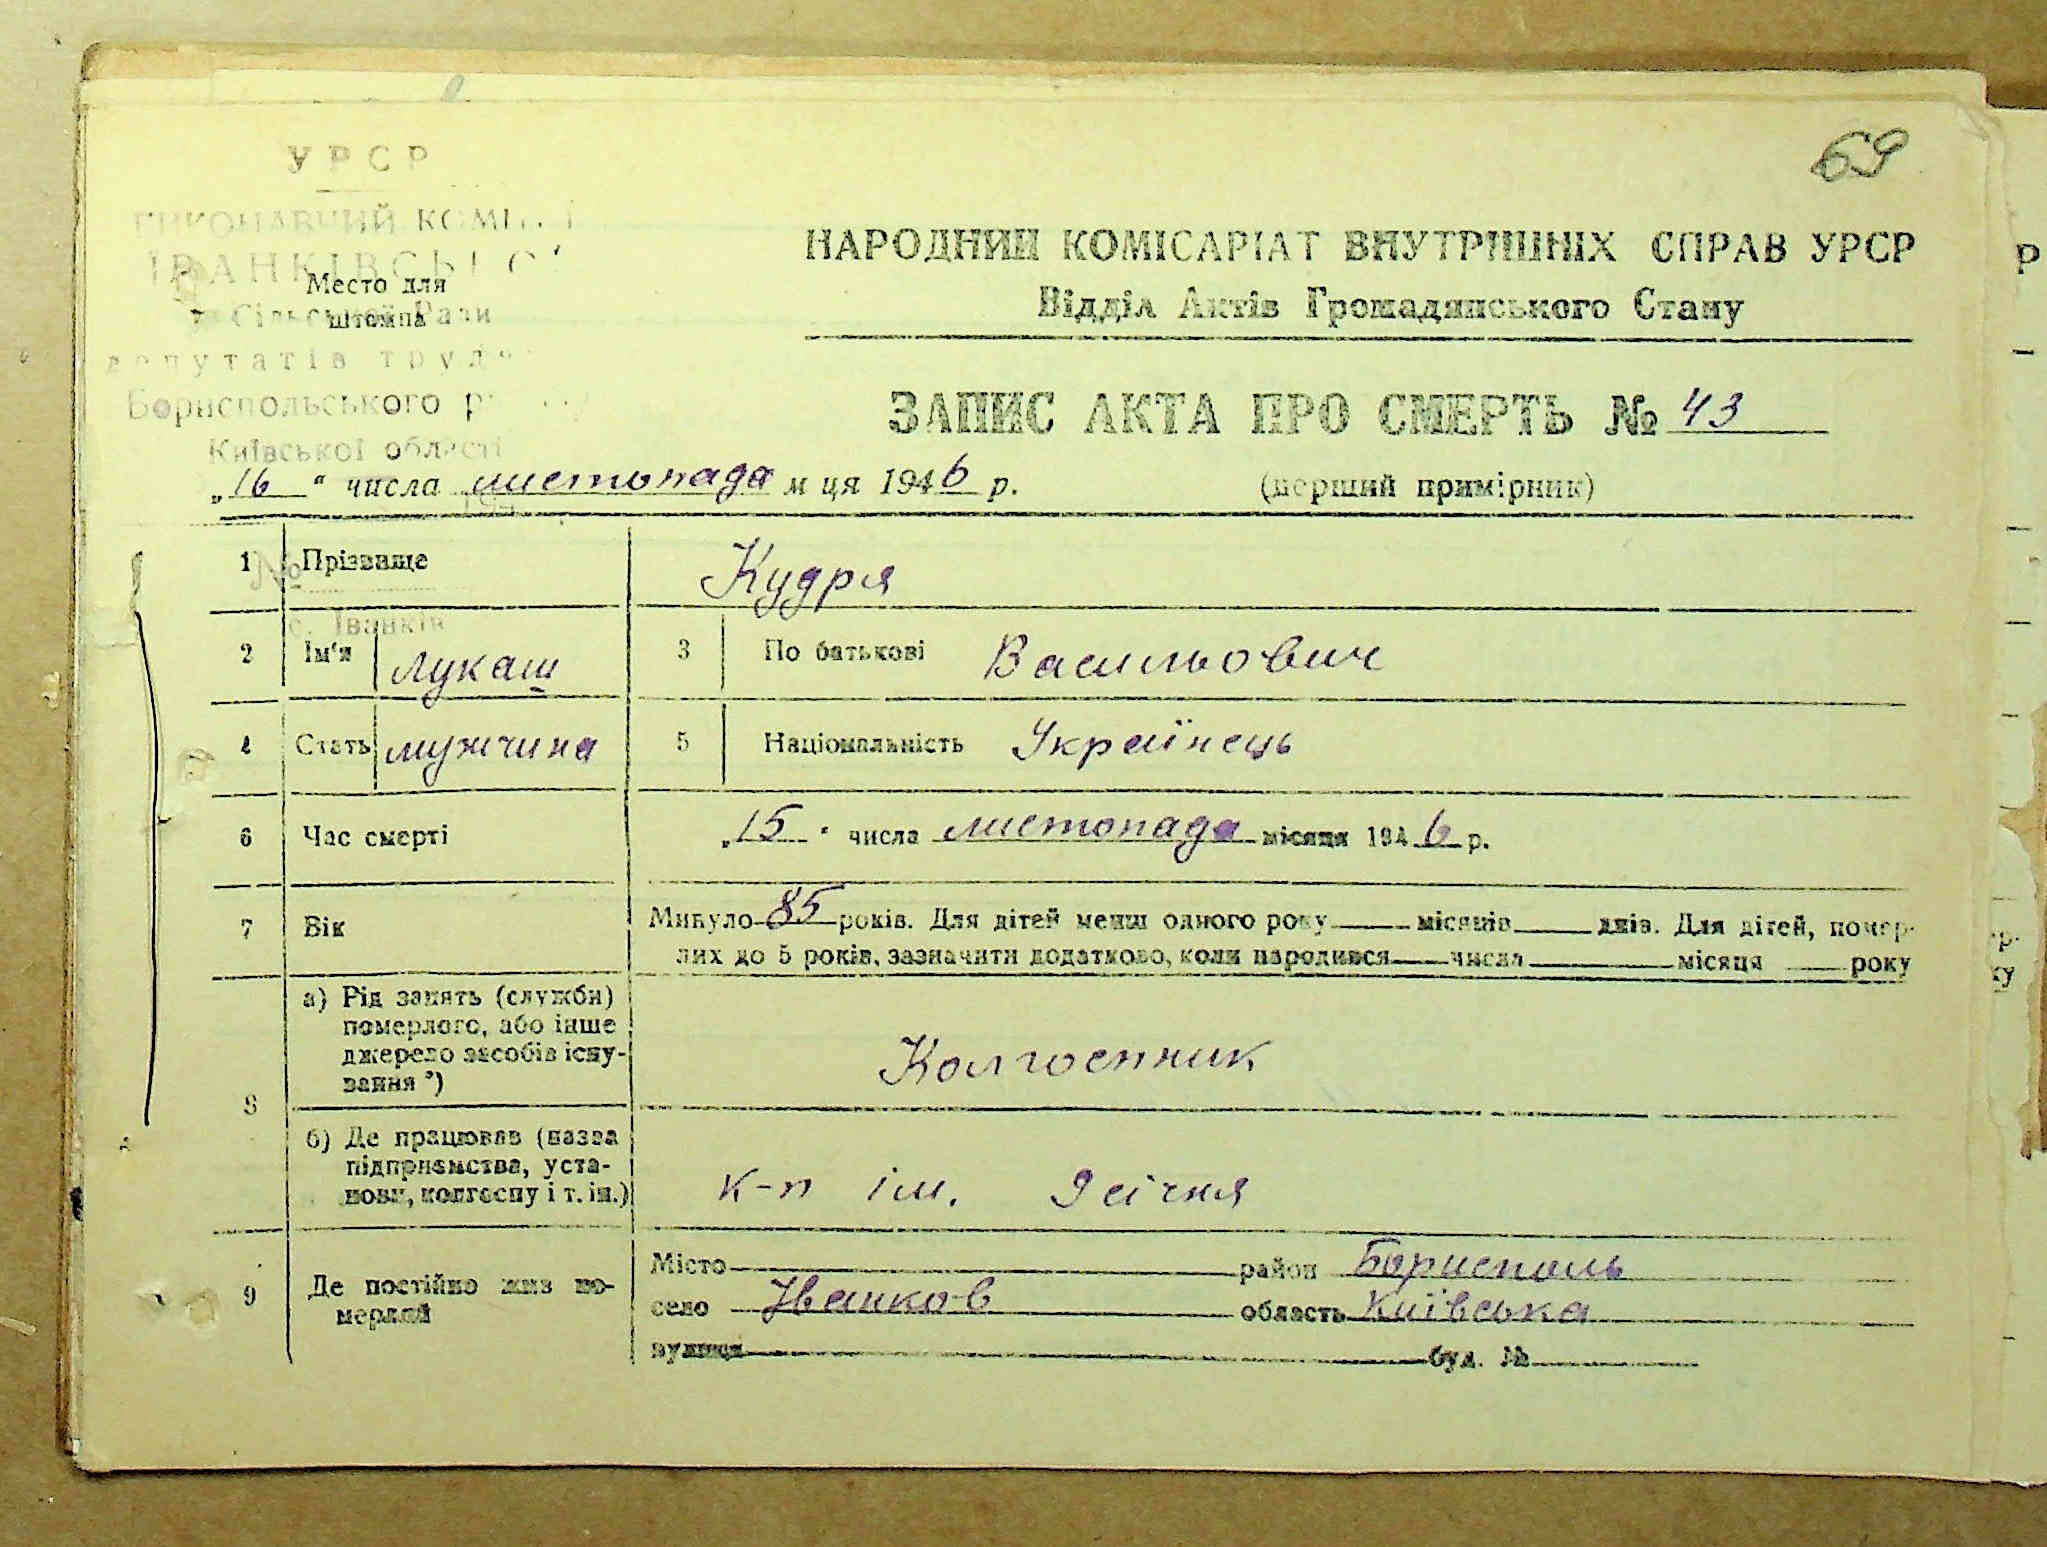 69
УРСР
ВИКОНАВЧИЙ КОМІТ
ІВАНКІВСЬКО
Место для
штампа
Сільської Ради
депутатів труд
Бориспольського р
Київської області
НАРОДНИЙ КОМІСАРІАТ ВНУТРІШНІХ СПРАВ УРСР
Відділ Актів Громадянського Стану
ЗАПИС АКТА ПРО СМЕРТЬ № 43
„16“ числа листопада м ця 1946 р. (перший примірник)
194
1 Прізвище Кудря
№
с. Іванків
2 Ім'я Лукаш 3 По батькові Васильович
4 Стать мужчина 5 Національність Українець
6 Час смерті „15“ числа листопада місяця 1946 р.
7 Вік Минуло 85 років. Для дітей менш одного року місяців днів. Для дітей, помер-
лих до 5 років, зазначити додатково, коли народився числа місяця року
8 а) Рід занять (служби)
померлого, або інше
джерело засобів існу-
вання *)
Колгоспник
б) Де працював (назва
підприємства, уста-
нови, колгоспу і т. ін.)
к-п ім. 9 січня
9 Де постійно жив по-
мерлий
Місто район Борисполь
село Иванков область Київська
вулиця буд. №